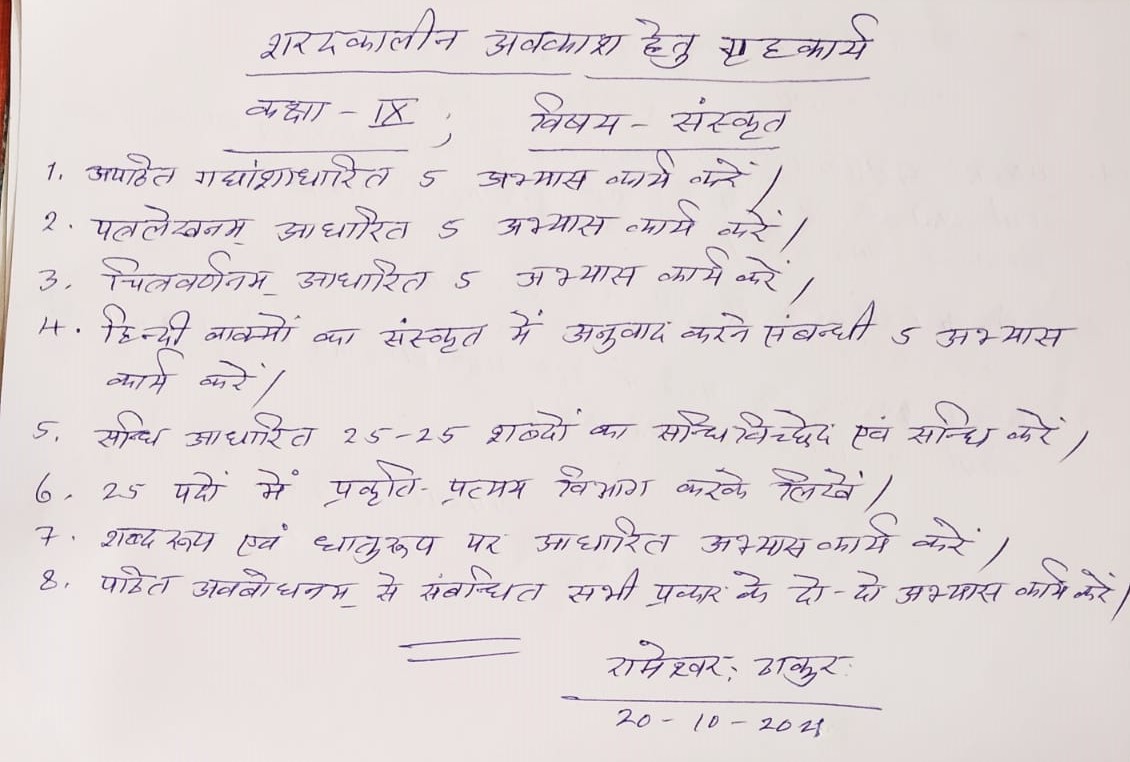 शरदकालीन अवकाश हेतु गृहकार्य
कक्षा - IX ; विषय - संस्कृत
1. अपठित गद्यांशाधारित 5 अभ्यास कार्य करें।
2. पत्रलेखनम् आधारित 5 अभ्यास कार्य करें।
3. चित्रवर्णनम् आधारित 5 अभ्यास कार्य करें।
4. हिन्दी वाक्यों का संस्कृत में अनुवाद करने संबन्धी 5 अभ्यास
कार्य करें।
5. सन्धि आधारित 25-25 शब्दों का सन्धिविच्छेद एवं सन्धि करें।
6. 25 पदों में प्रकृति-प्रत्यय विभाग करके लिखें।
7. शब्दरूप एवं धातुरूप पर आधारित अभ्यास कार्य करें।
8. पठित अवबोधनम् से संबन्धित सभी प्रकार के दो-दो अभ्यास कार्य करें।
रामेश्वर: ठाकुर:
20-10-2021